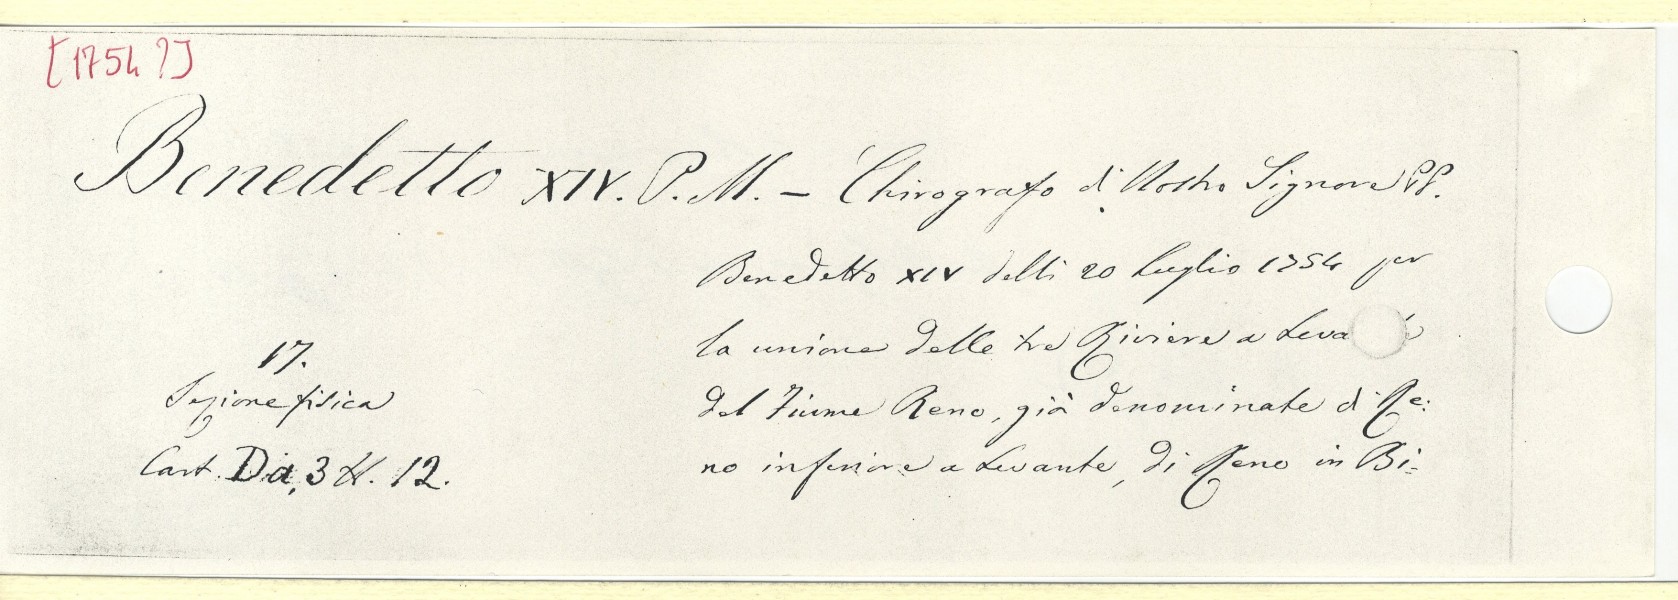 [1754?]
Benedetto XIV. P. M. – Chirografo di Nostro Signore PP.
Benedetto XIV delli 20 Luglio 1754 per
la unione delle tre Riviere a Levante
del Fiume Reno, già denominate di Re:
no inferiore a Levante, di Reno in Bi-
17.
Sezione fisica
Cart. Da, 3 H. 12.